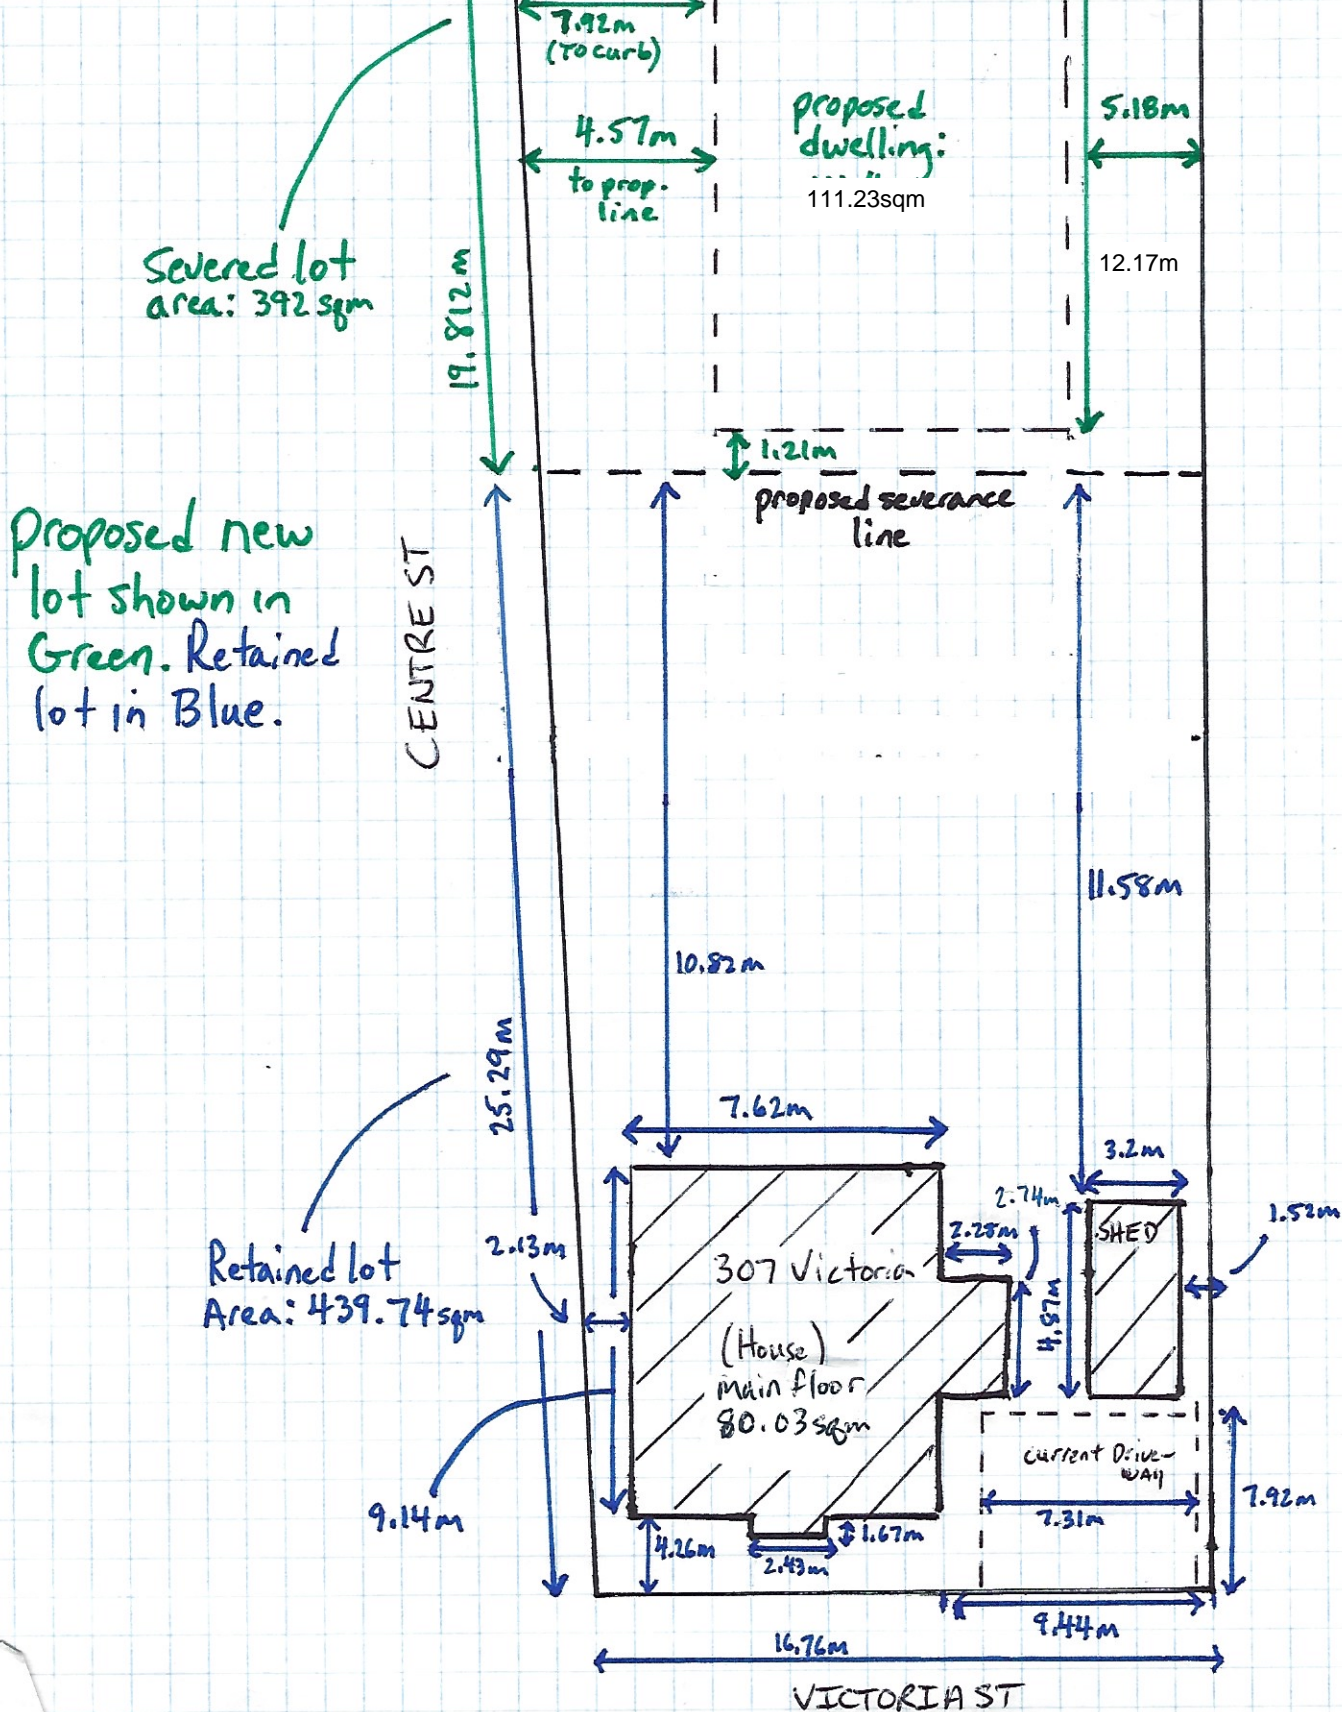 7.92m
(To curb)
proposed
dwelling:
111.23sqm
5.18m
4.57m
to prop.
line
12.17m
Severed lot
area: 392 sqm
19.812m
1.21m
proposed severance
line
proposed new
lot shown in
Green. Retained
lot in Blue.
CENTRE ST
11.58m
10.82m
25.29m
7.62m
3.2m
2.74m
2.28m
SHED
1.52m
2.13m
Retained lot
Area: 439.74sqm
307 Victoria
(House)
main floor
80.03sqm
4.87m
current Drive-
way
7.31m
7.92m
9.14m
4.26m
2.43m
1.67m
9.44m
16.76m
VICTORIA ST